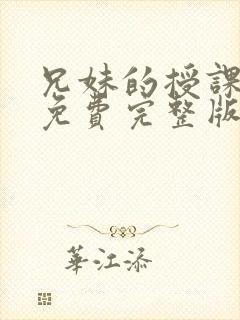 兄妹的授課
免費完整版
華江添